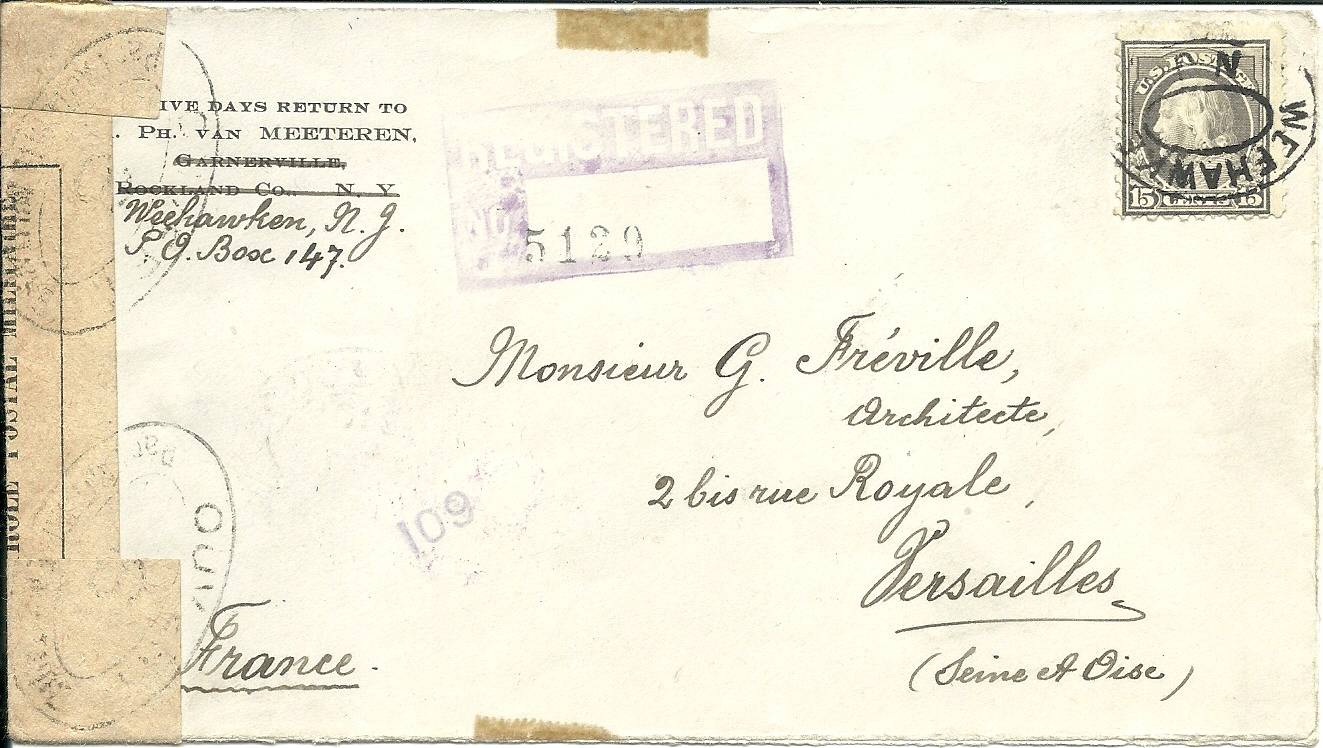 IVE DAYS RETURN TO
. PH. VAN MEETEREN,
GARNERVILLE,
ROCKLAND CO., N. Y
Weehawken, N. J.
P. O. Box 147.
REGISTERED
NO.
5129
U.S. POSTAGE
15 CENTS 15
WEEHAWKEN
N J
Monsieur G. Fréville,
Architecte,
2 bis rue Royale,
Versailles
(Seine et Oise)
France.
109
OUV
ROLE POSTAL MILITAIRE